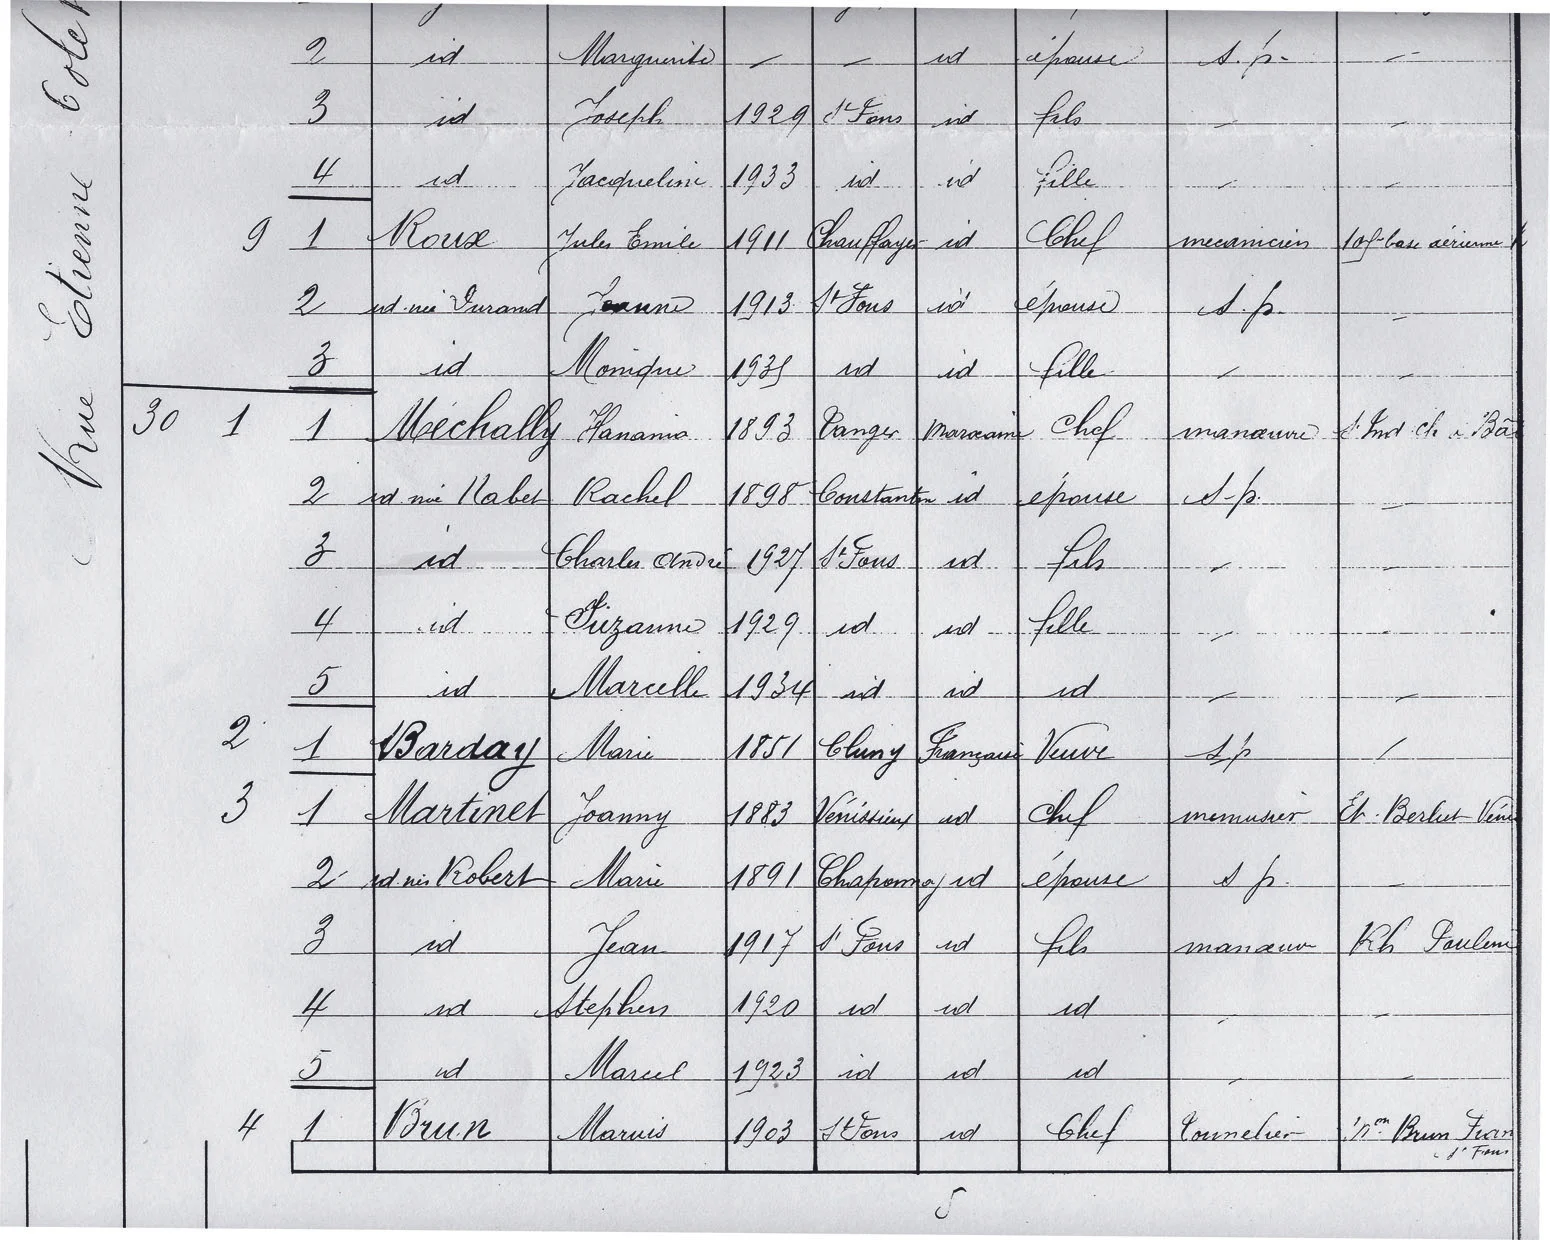 Rue Etienne Dolet
2 id Marguerite — — id épouse s.p. —
3 id Joseph 1929 St Fons id fils — —
4 id Jacqueline 1933 id id fille — —
9 1 Roux Jules Emile 1911 Chauffayer id Chef mecanicien base aérienne
2 id née Durand Jeanne 1913 St Fons id épouse S.p. —
3 id Monique 1935 id id fille — —
30 1 1 Méchally Hanania 1893 Tanger Marocaine Chef manœuvre St Ind. ch.
2 id née Nabet Rachel 1898 Constantin id épouse S.p. —
3 id Charles André 1927 St Fons id fils — —
4 id Suzanne 1929 id id fille — —
5 id Marcelle 1934 id id id — —
2 1 Barday Marie 1851 Cluny Française Veuve s.p. —
3 1 Martinet Joanny 1883 Vénissieux id chef menuisier Et. Berliet Véni
2 id née Robert Marie 1891 Chaponnay id épouse s p. —
3 id Jean 1917 St Fons id fils manœuv Rh Poulenc
4 id Stephen 1920 id id id — —
5 id Marcel 1923 id id id — —
4 1 Brun Marius 1903 St Fons id Chef Tonnelier Brun Fran
St Fons
5